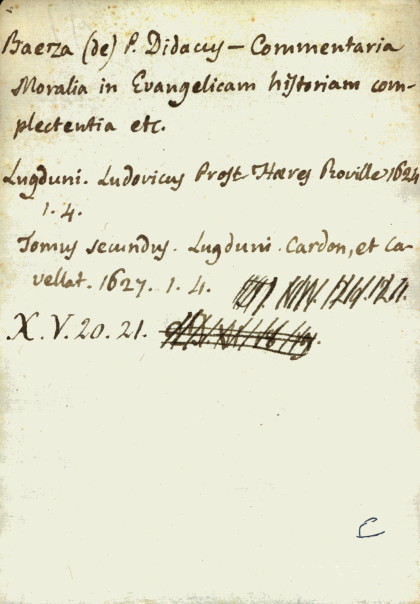 Baeza (de) P. Didacus — Commentaria
Moralia in Evangelicam historiam com-
plectentia etc.
Lugduni. Ludovicus Prost Hæres Roville 1624
1. 4.
Tomus secundus. Lugduni. Cardon, et Ca-
vellat. 1627. 1. 4.
X. V. 20. 21.
C